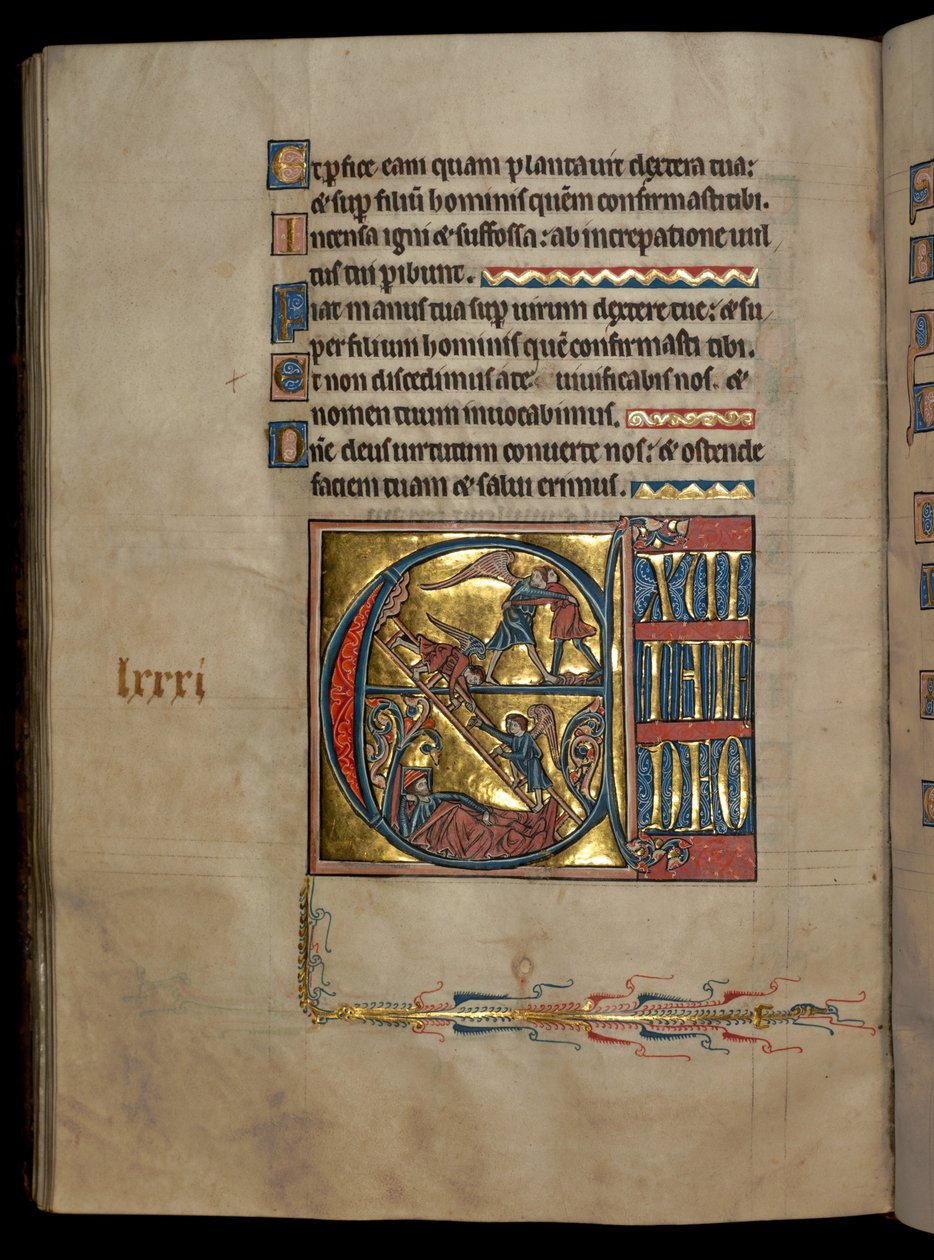 Et ꝑfice eam quam plantauit dextera tua:
& suꝑ filiū hominis quēm confirmasti tibi.
Incensa igni & suffossa: ab increpatione uul
tus tui ꝑibunt.
Fiat manus tua suꝑ uirum dextere tue: & su
per filium hominis quē confirmasti tibi.
Et non discedimus a te uiuificabis nos. &
nomen tuum inuocabimus.
Dn̄e deus uirtutum conuerte nos: & ostende
faciem tuam & salui erimus.
lxxxi
EXUL
TATE
DEO